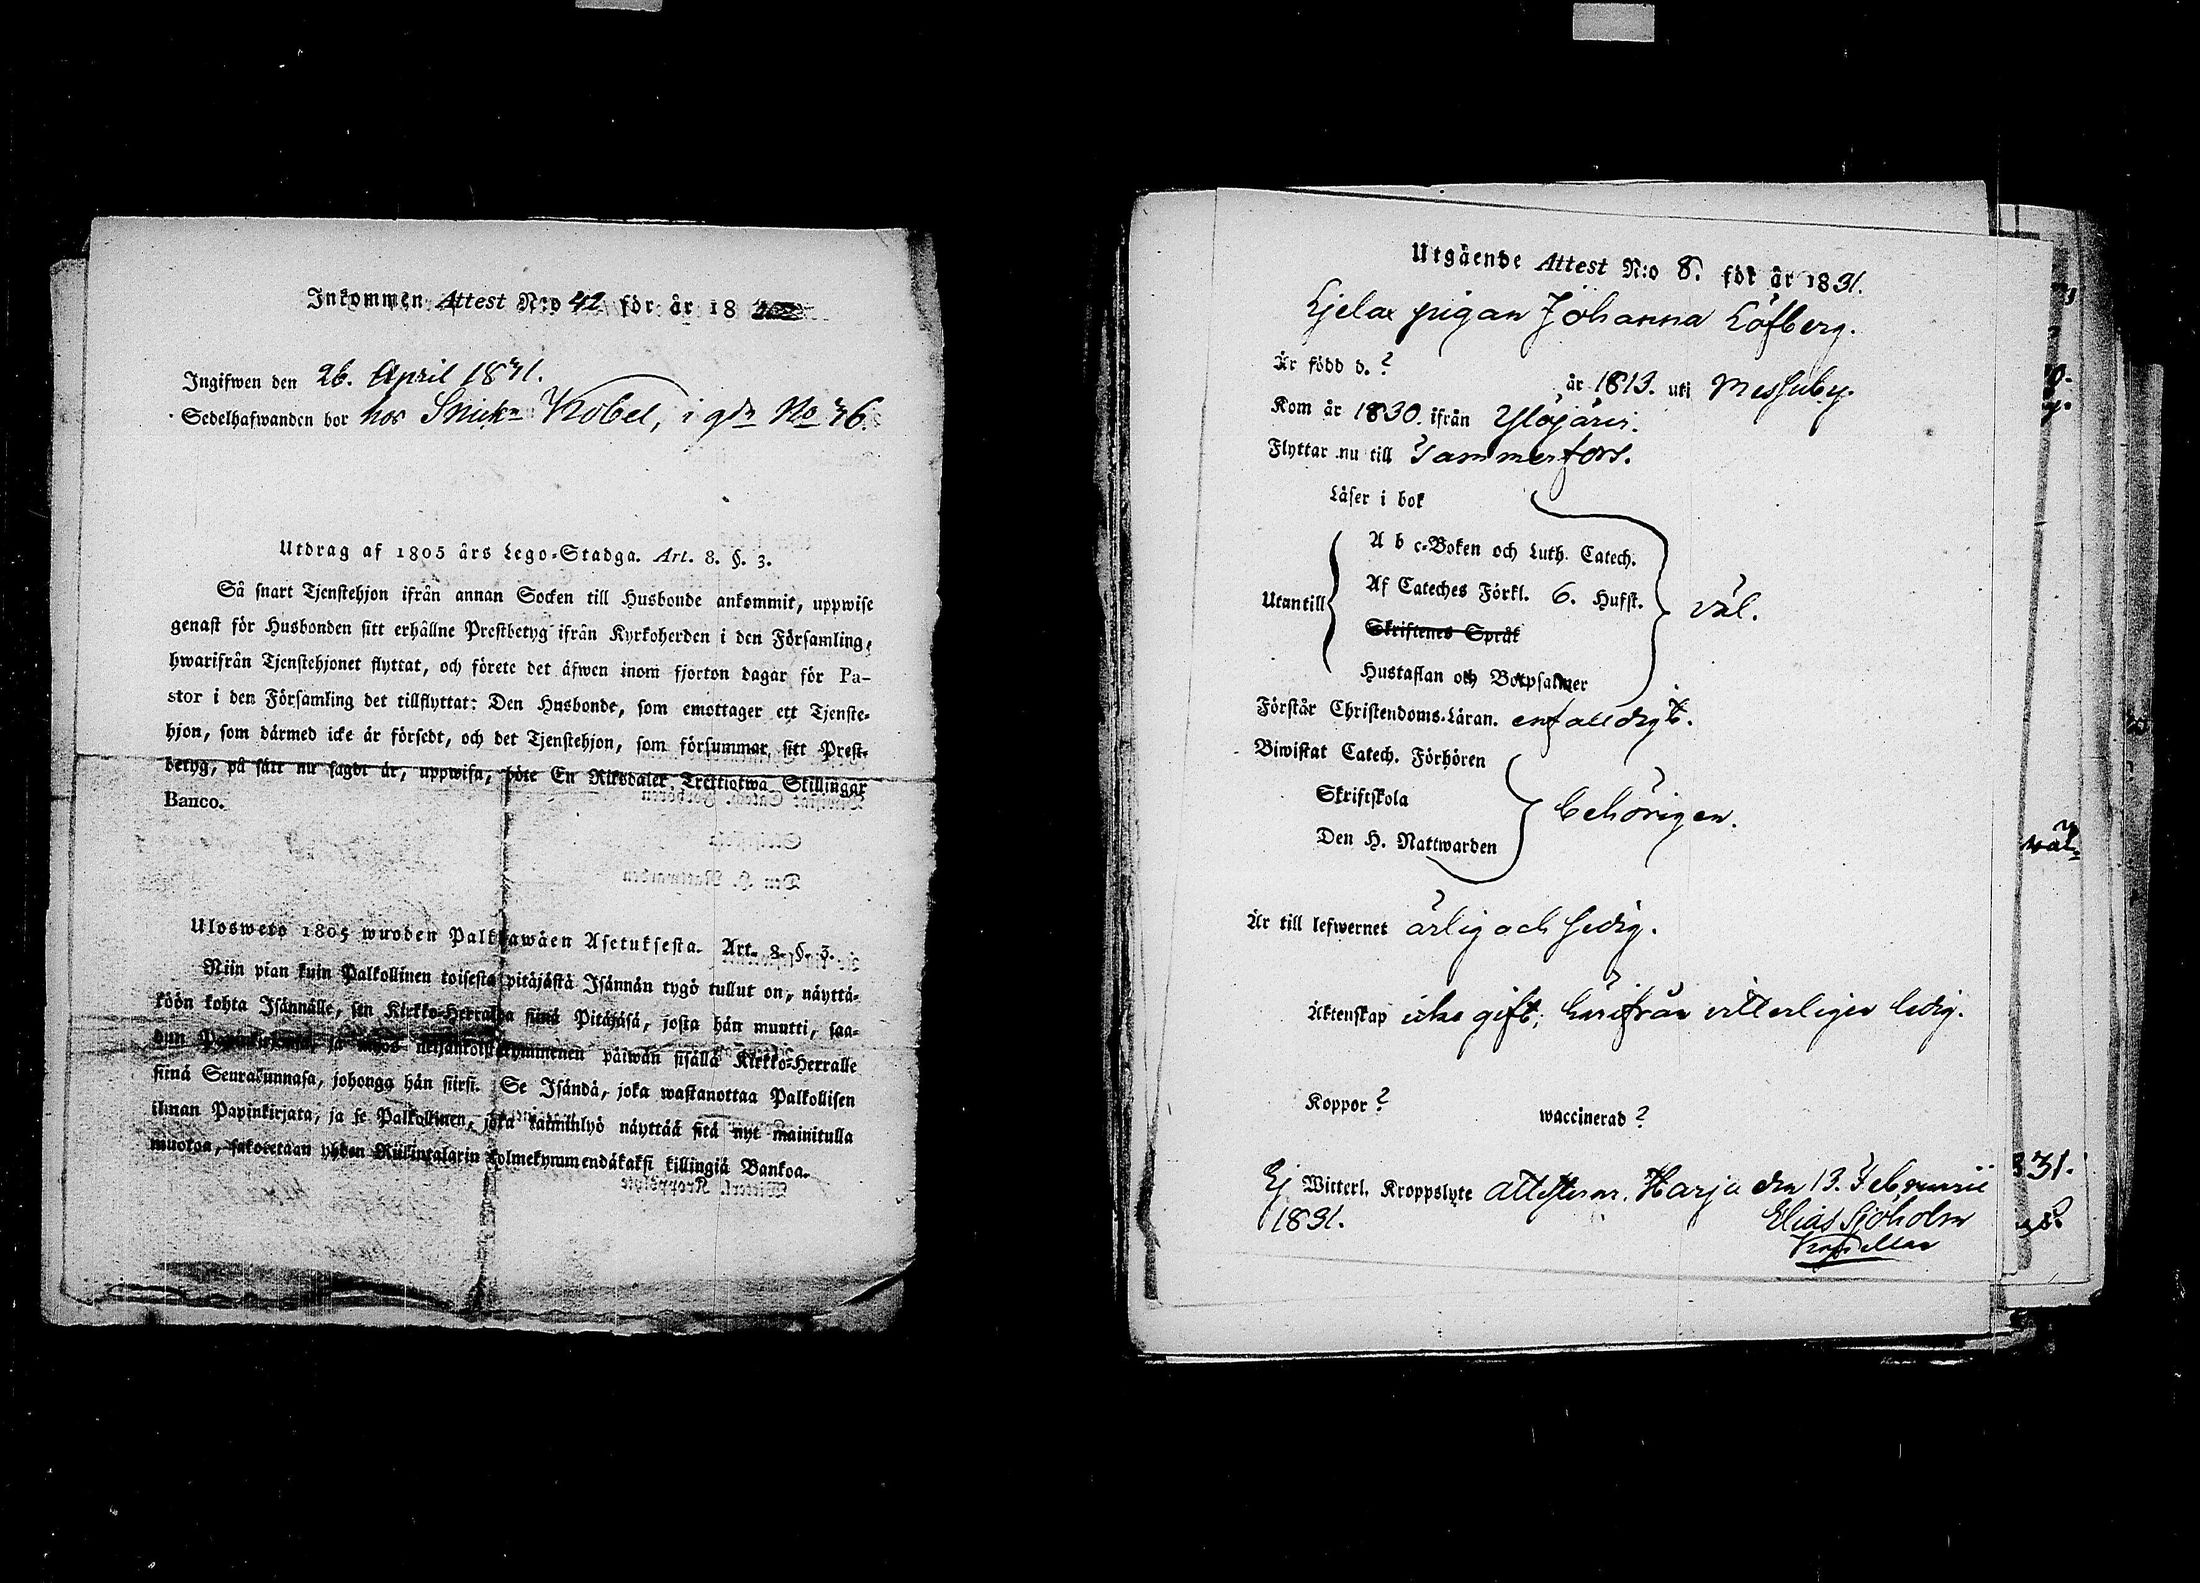 Inkommen Attest N:o 42 för år 18
Ingifwen den 26. April 1831.
Sedelhafwanden bor hos Snick Kobel, i gdn No 36.
Utdrag af 1805 års Lego-Stadga. Art. 8. §. 3.
Så snart Tjenstehjon ifrån annan Socken till Husbonde ankommit, uppwise
genast för Husbonden sitt erhållne Prestbetyg ifrån Kyrkoherden i den Församling,
hwarifrån Tjenstehjonet flyttat, och förete det äfwen inom fjorton dagar för Pa-
stor i den Församling det tillflyttat: Den Husbonde, som emottager ett Tjenste-
hjon, som därmed icke är försedt, och det Tjenstehjon, som försummar sitt Prest-
betyg, på sätt nu sagdt är, uppwisa, böte En Riksdaler Trettiotwa Skillingar
Banco.
Ulosweto 1805 wuoden Palkkawäen Asetuksesta. Art. 8. §. 3.
Niin pian kuin Palkollinen toisesta pitäjästä Isännän tygö tullut on, näyttä-
köön kohta Isännälle, sen Kirkko-Herralda siinä Pitäjäsä, josta hän muutti, saa-
dun Papinkirjansa, ja myös neljäntoistakymmenen päiwän sisällä Kirkko-Herralle
siinä Seurakunnasa, johonga hän siirsi. Se Isändä, joka wastanottaa Palkollisen
ilman Papinkirjata, ja se Palkollinen, joka laiminlyö näyttää sitä nyt mainitulla
muotoa, sakotetaan yhden Riikintalarin kolmekymmendäkaksi killingiä Bankoa.
Utgående Attest N:o 8. för år 1831.
Ejelax pigan Johanna Löfberg.
Är född d. ? år 1813. uti Messuby.
Kom år 1830. ifrån Ylöjärvi.
Flyttar nu till Tammerfors.
Läser i bok
A b c-Boken och Luth. Catech.
Utantill Af Cateches Förkl. 6. Hufst. väl.
Skriftenes Språk
Hustaflan och Botpsalmer
Förstår Christendoms-Läran. enfalldigt.
Biwistat Catech. Förhören
Skriftskola behörigen.
Den H. Nattwarden
Är till lefwernet ärlig och sedig.
Äktenskap icke gift, härifrån vitterligen ledig.
Koppor ? waccinerad ?
Ej Witterl. Kroppslyte attesterar. Harju den 13. Februarii
1831. Elias Sjöholm
Kapellan